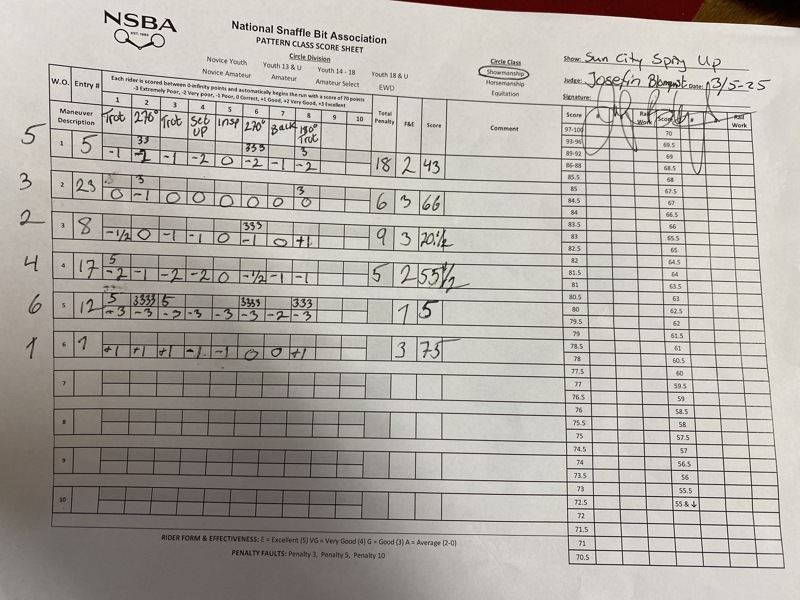 NSBA
EST. 1983
National Snaffle Bit Association
PATTERN CLASS SCORE SHEET
Circle Division
Novice Youth Youth 13 & U Youth 14 - 18 Youth 18 & U
Novice Amateur Amateur Amateur Select EWD
Circle Class
Showmanship
Horsemanship
Equitation
Show: Sun City Spring Up
Judge: Josefin Blomqvist Date: 3/5-25
Signature:
W.O. Entry # Each rider is scored between 0-infinity points and automatically begins the run with a score of 70 points
-3 Extremely Poor, -2 Very poor, -1 Poor, 0 Correct, +1 Good, +2 Very Good, +3 Excellent
1 2 3 4 5 6 7 8 9 10 Total Penalty F&E Score Comment
Maneuver Description Trot 270° Trot Set UP insp 270° Back 180° Trot
33 333 3
5 1 5 -1 -2 -1 -2 0 -2 -1 -2 18 2 43
3 3
3 2 23 0 -1 0 0 0 0 0 0 6 3 66
333
2 3 8 -1/2 0 -1 -1 0 -1 0 +1 9 3
5
4 4 17 -2 -1 -2 -2 0 -1/2 -1 -1 5 2 55 1/2
5 3333 5 3333 333
6 5 12 -3 -3 -3 -3 -3 -3 -2 -3 1 5
1 6 1 +1 +1 +1 -1 -1 0 0 +1 3 75
7
8
9
10
Score Rail Work Score Rail Work
97-100 70
93-96 69.5
89-92 69
86-88 68.5
85.5 68
85 67.5
84.5 67
84 66.5
83.5 66
83 65.5
82.5 65
82 64.5
81.5 64
81 63.5
80.5 63
80 62.5
79.5 62
79 61.5
78.5 61
78 60.5
77.5 60
77 59.5
76.5 59
76 58.5
75.5 58
75 57.5
74.5 57
74 56.5
73.5 56
73 55.5
72.5 55 & ↓
72
71.5
71
70.5
RIDER FORM & EFFECTIVENESS: E = Excellent (5) VG = Very Good (4) G = Good (3) A = Average (2-0)
PENALTY FAULTS: Penalty 3, Penalty 5, Penalty 10